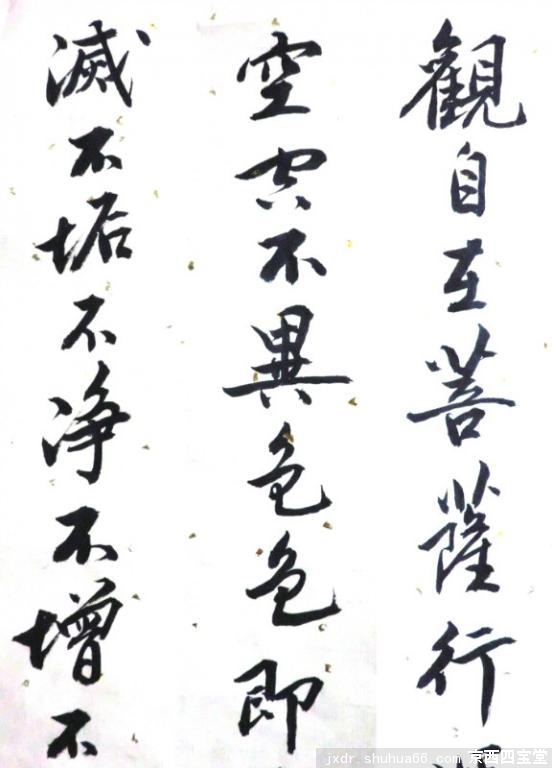 觀自在菩薩行
空空不異色色即
滅不垢不淨不增不
jxdr.shuhua66.com 京西四宝堂